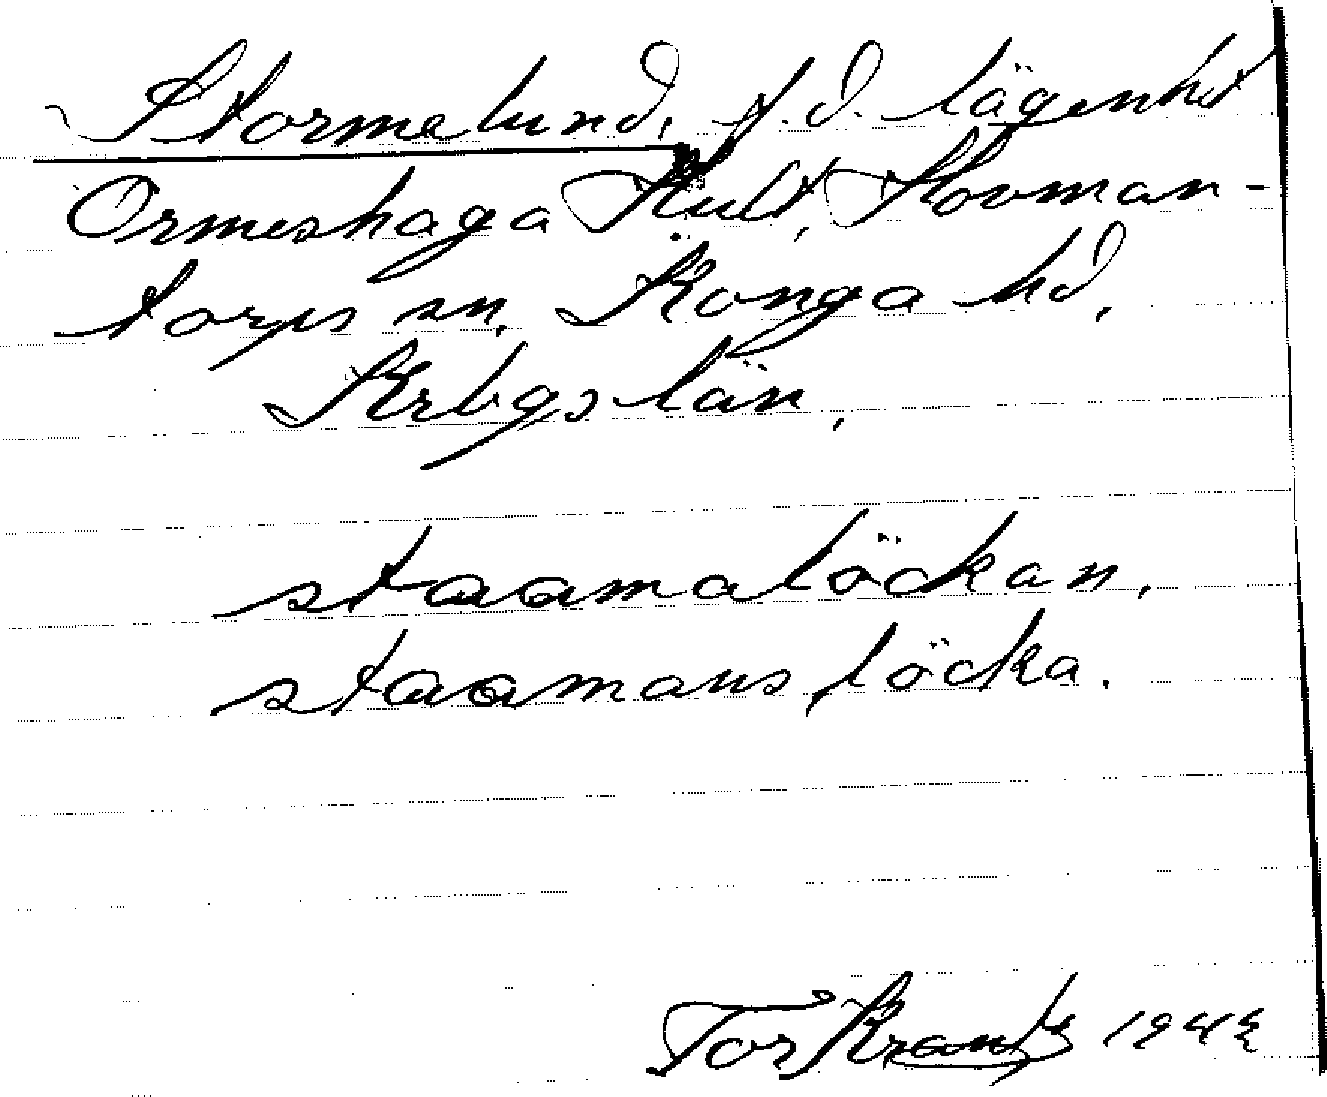 Stormelund, f.d. lägenhet
Ormeshaga Hult, Hovman-
torps sn, Konga hd,
Krbgs län,
staamalöckan,
staamans löcka.
Tor Krantz 1942